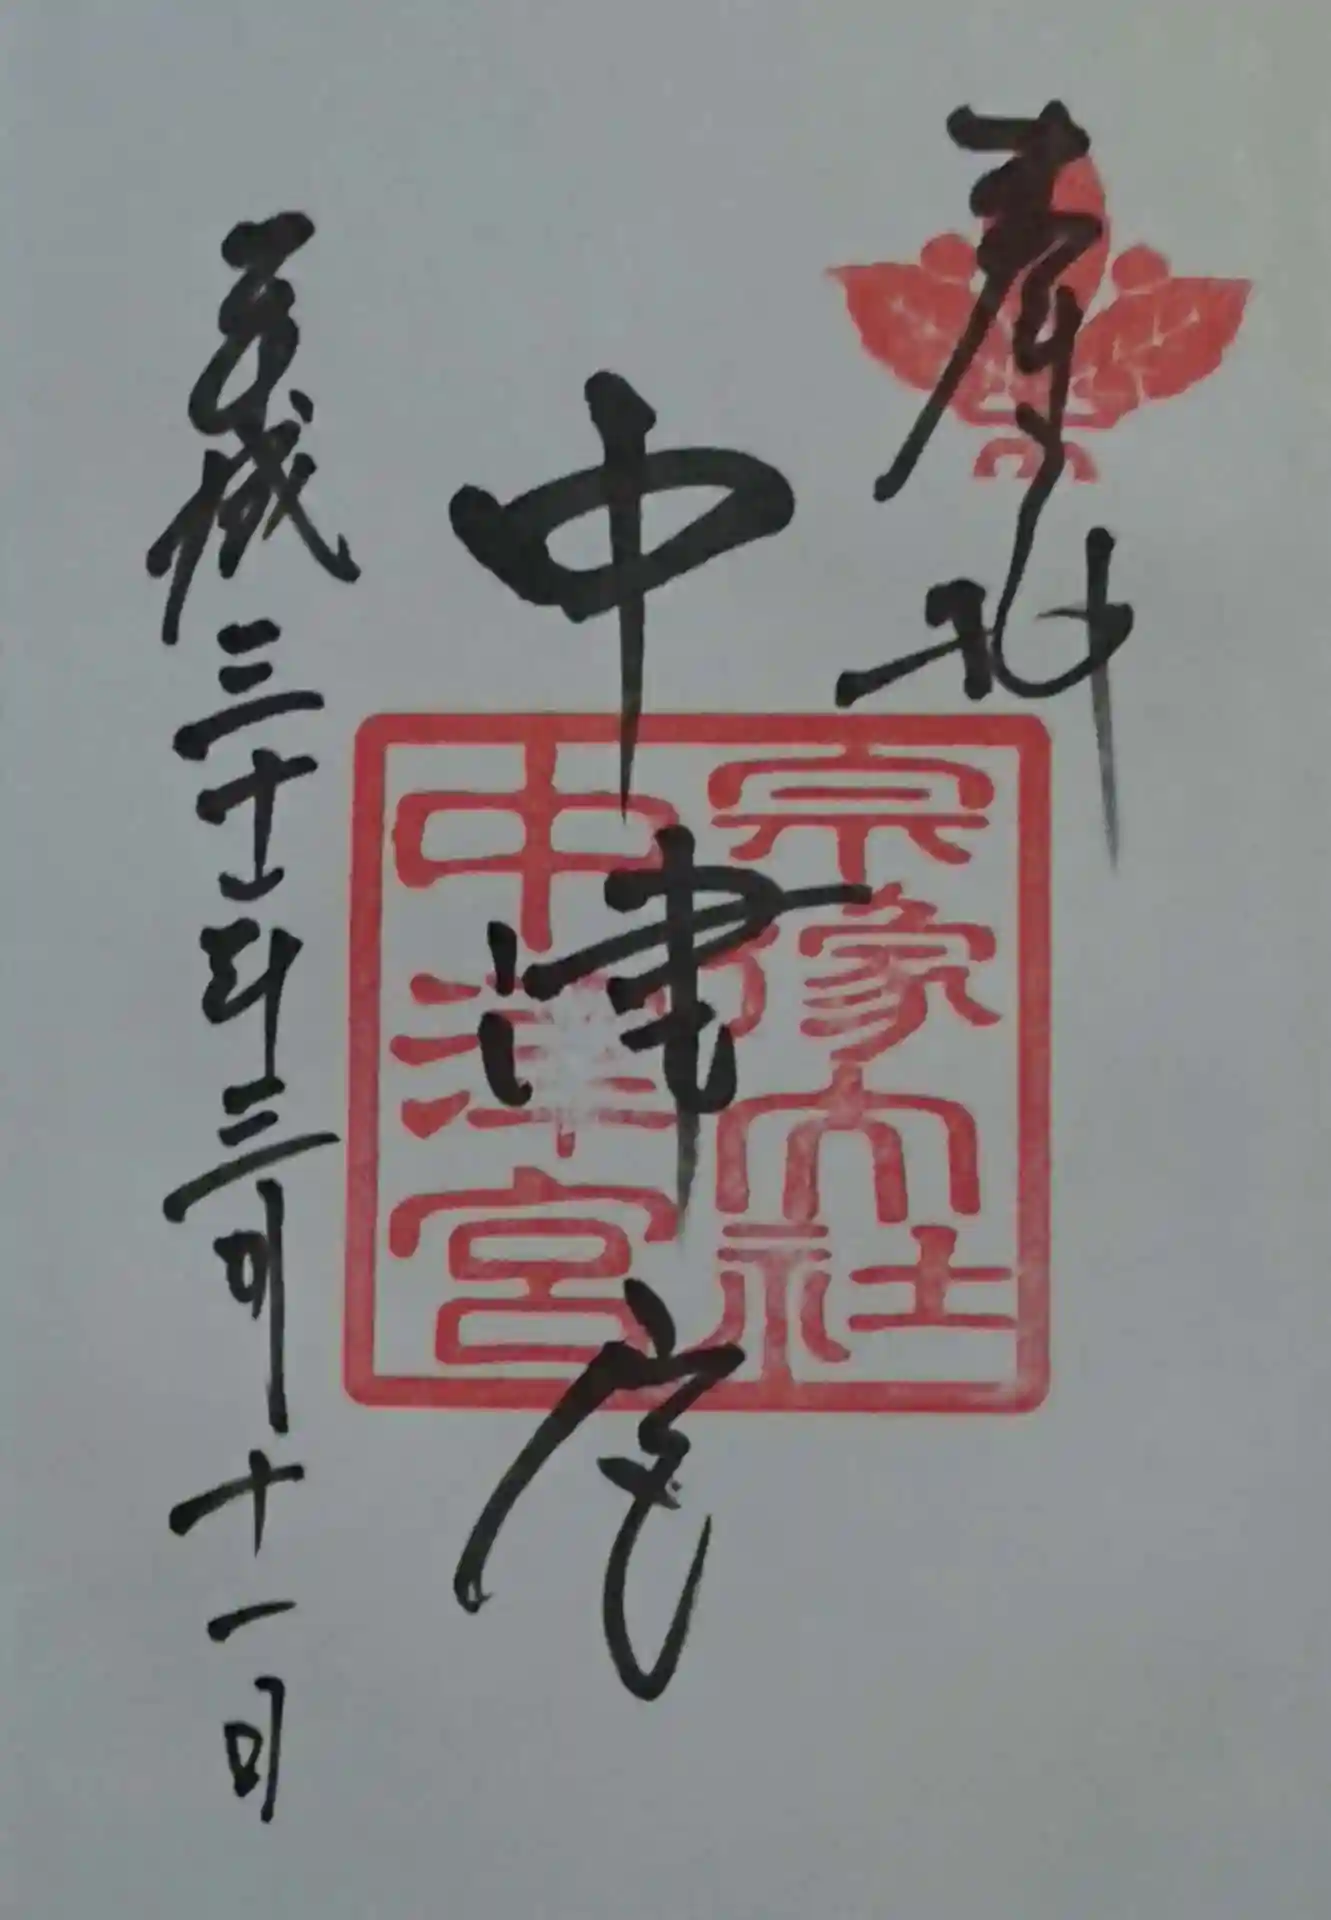 奉拝
宗像大社
中津宮
中津宮
平成三十一年三月十一日